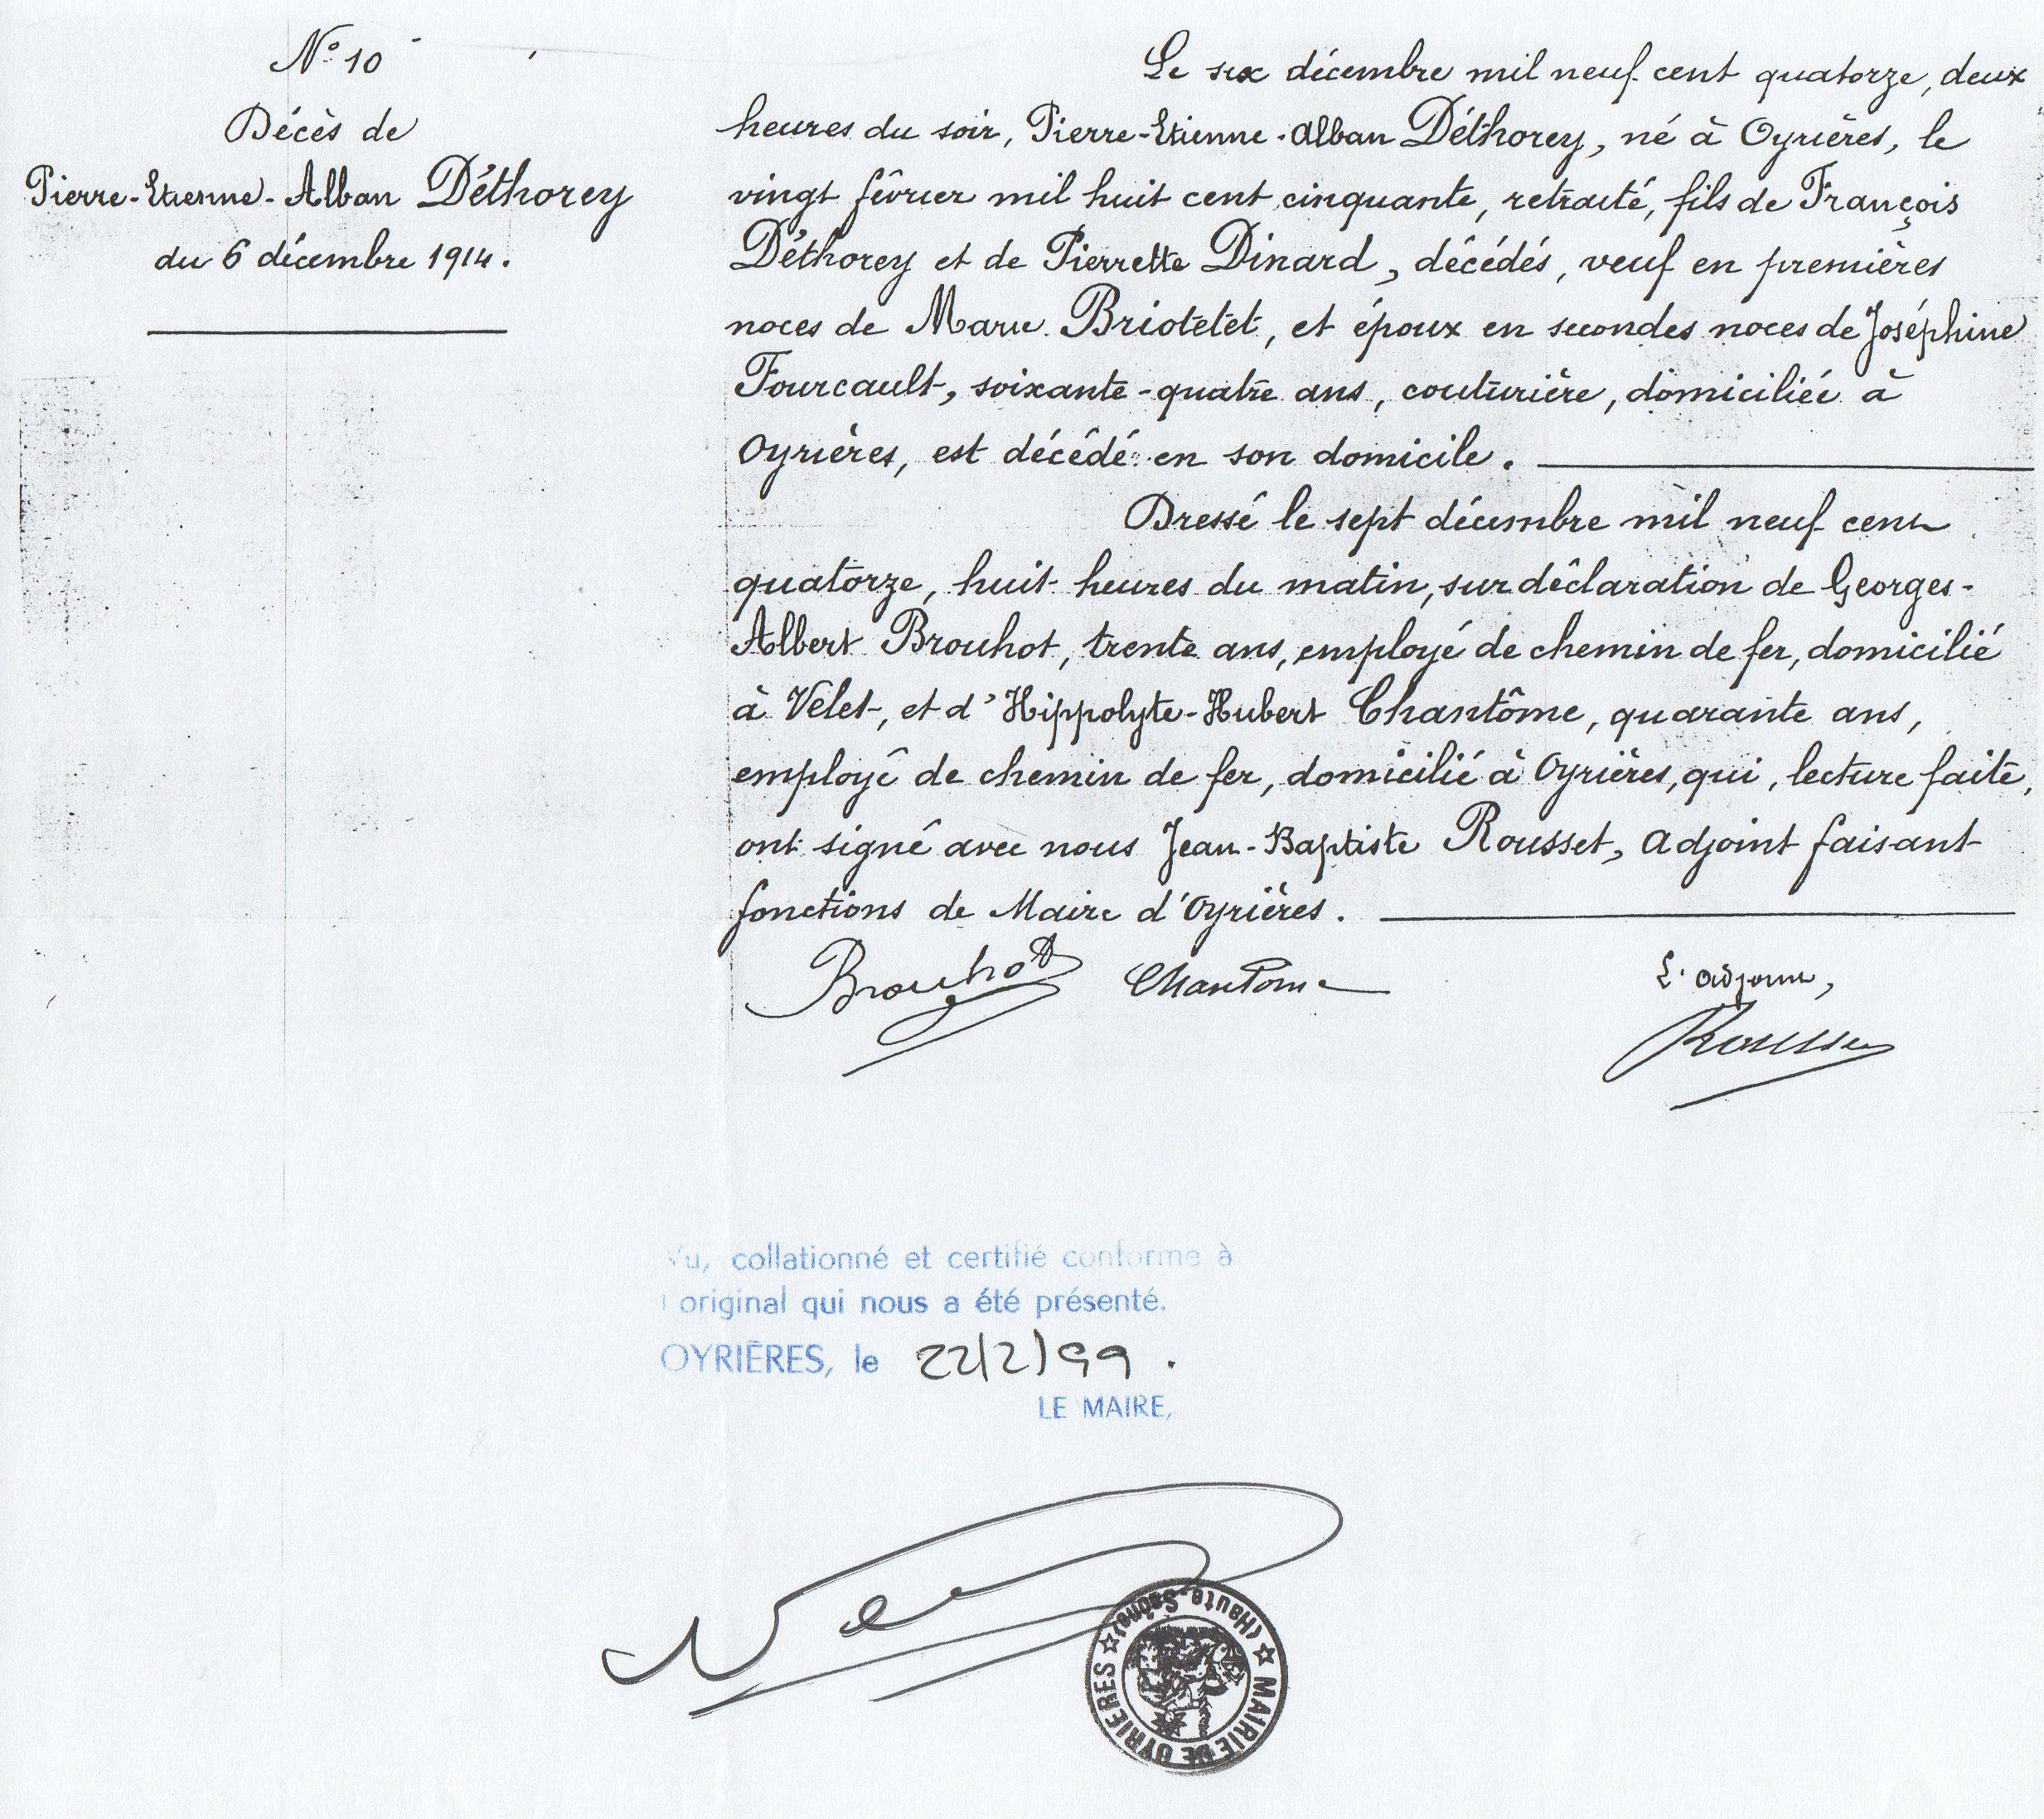 N° 10
Décès de
Pierre-Etienne-Alban Déthorey
du 6 décembre 1914.
Le six décembre mil neuf cent quatorze, deux
heures du soir, Pierre-Etienne-Alban Déthorey, né à Oyrières, le
vingt février mil huit cent cinquante, retraité, fils de François
Déthorey et de Pierrette Dinard, décédés, veuf en premières
noces de Marie Briotetet, et époux en secondes noces de Joséphine
Fourcault, soixante-quatre ans, couturière, domiciliée à
Oyrières, est décédé en son domicile.
Dressé le sept décembre mil neuf cent
quatorze, huit heures du matin, sur déclaration de Georges-
Albert Brouhot, trente ans, employé de chemin de fer, domicilié
à Velet, et d'Hippolyte-Hubert Chantôme, quarante ans,
employé de chemin de fer, domicilié à Oyrières, qui, lecture faite,
ont signé avec nous Jean-Baptiste Rousset, adjoint faisant
fonctions de Maire d'Oyrières.
Brouhot Chantome
L'adjoint,
Rousset
Vu, collationné et certifié conforme à
l'original qui nous a été présenté.
OYRIÈRES, le 22/2/99.
LE MAIRE,
MAIRIE DE OYRIERES (Haute-Saône)